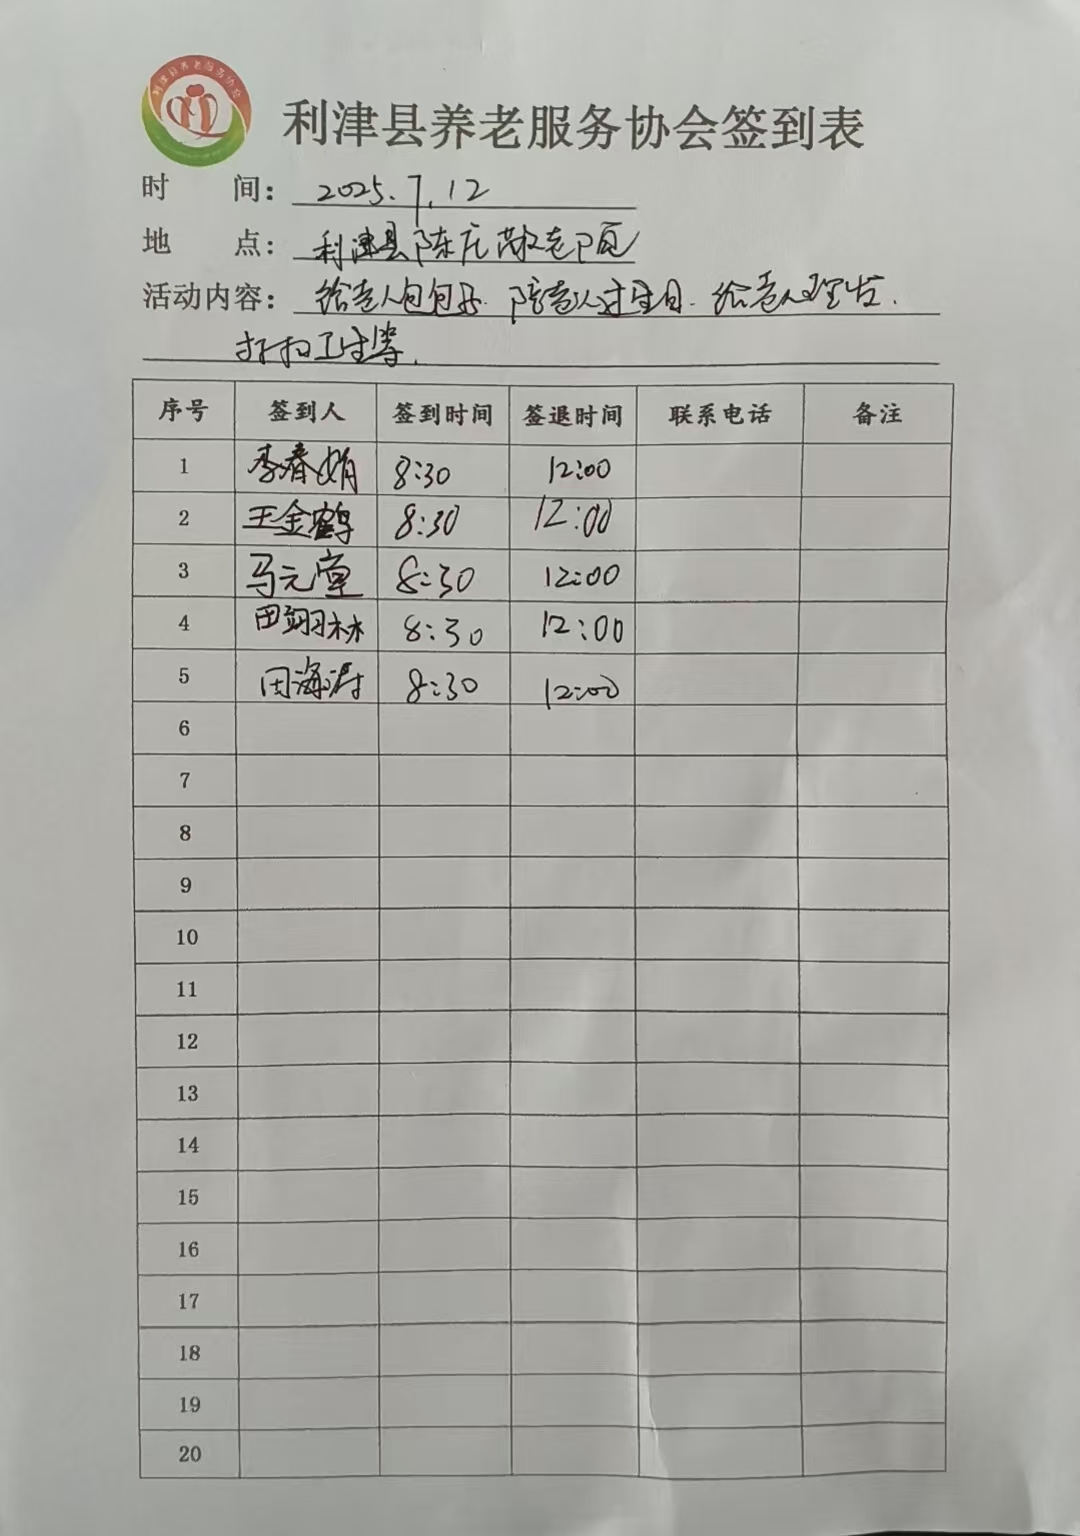 利津县养老服务协会
利津县养老服务协会签到表
时 间：2025.7.12
地 点：利津县陈庄敬老院
活动内容：给老人包包子.陪老人过生日.给老人理发.
打扫卫生等.
序号 签到人 签到时间 签退时间 联系电话 备注
1 李春娟 8:30 12:00
2 王金鹤 8:30 12:00
3 马元堂 8:30 12:00
4 田翊林 8:30 12:00
5 田海涛 8:30 12:00
6
7
8
9
10
11
12
13
14
15
16
17
18
19
20